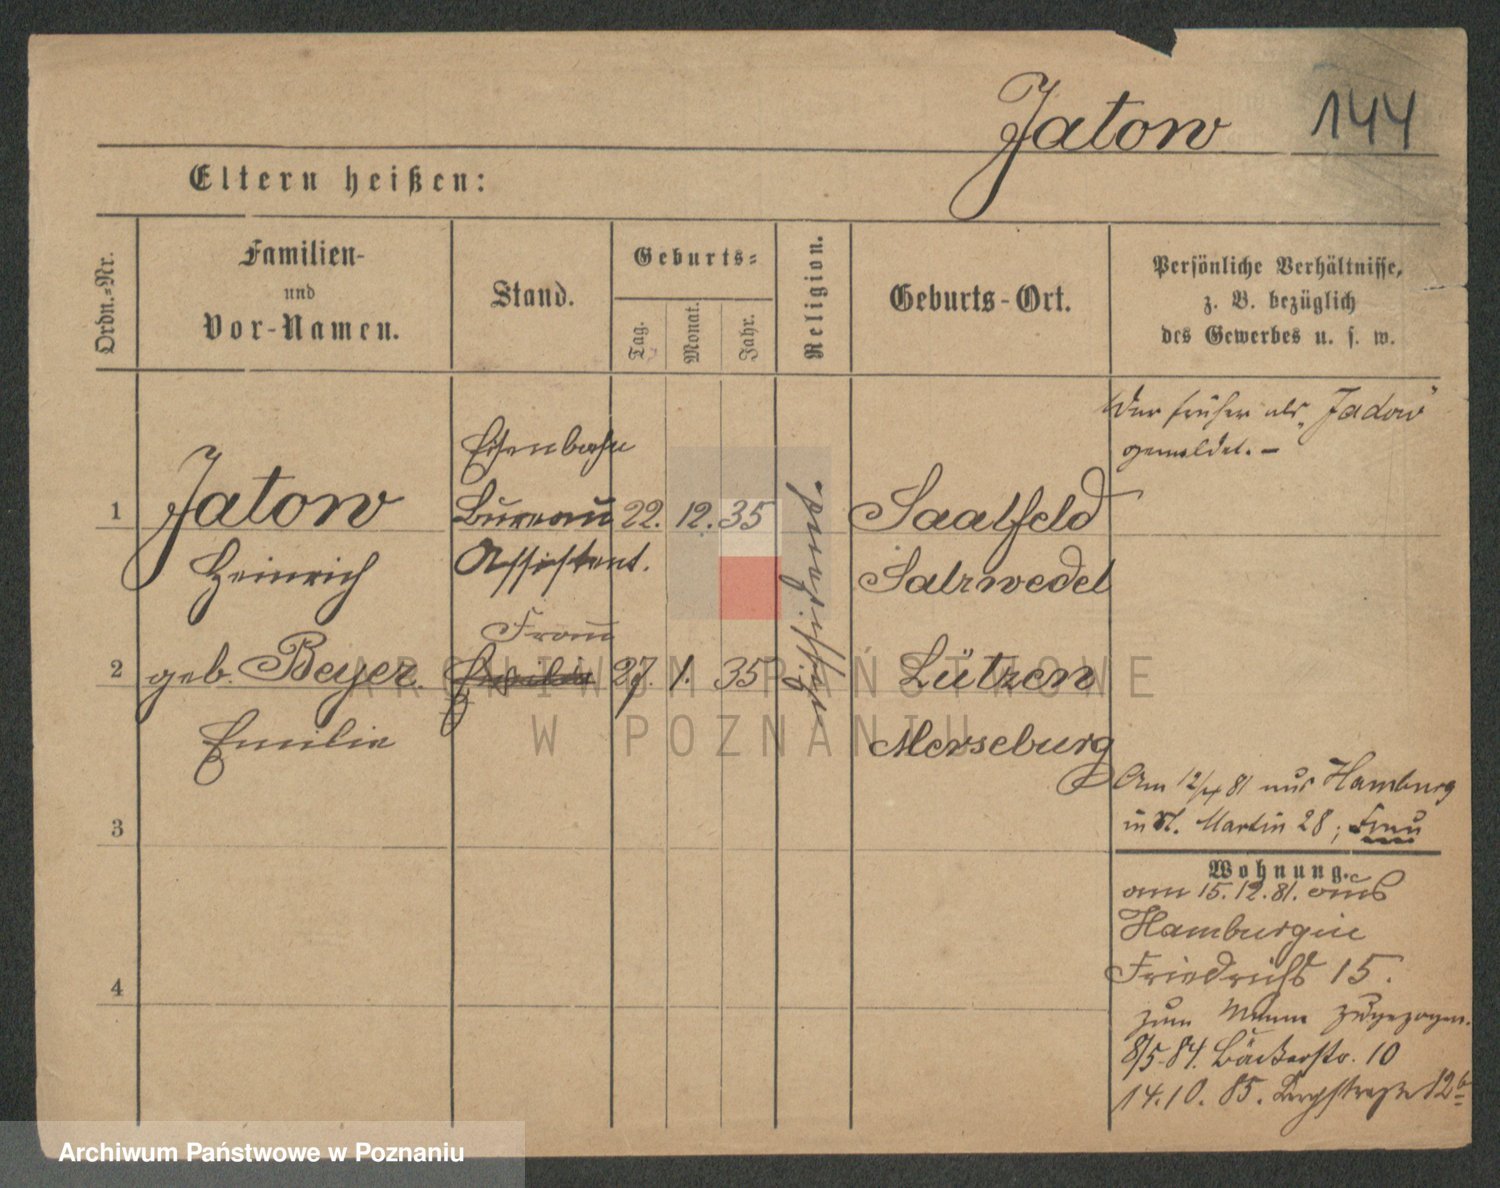 Jatow 144
Eltern heißen:
Ordn.-Nr.
Familien-
und
Vor-Namen.
Stand.
Geburts-
Tag.
Monat.
Jahr.
Religion.
Geburts-Ort.
Persönliche Verhältnisse,
z. B. bezüglich
des Gewerbes u. s. w.
War früher als „Jadow"
gemeldet. –
Eisenbahn
1 Jatow Bureau 22. 12. 35 Saalfeld
Heinrich Assistent. Salzwedel
evangelisch
Frau
2 geb. Beyer. 27. 1. 35 Lützen
Emilie Merseburg
Am 12/ 81 aus Hamburg
in St. Martin 28; Frau
3
Wohnung.
am 15.12.81. aus
Hamburg in
Friedrichs 15.
4
zum Mann zugezogen.
8/5 84. Bäckerstr. 10
14.10.85. Bergstraße 12b
ARCHIWUM PAŃSTWOWE
W POZNANIU
Archiwum Państwowe w Poznaniu